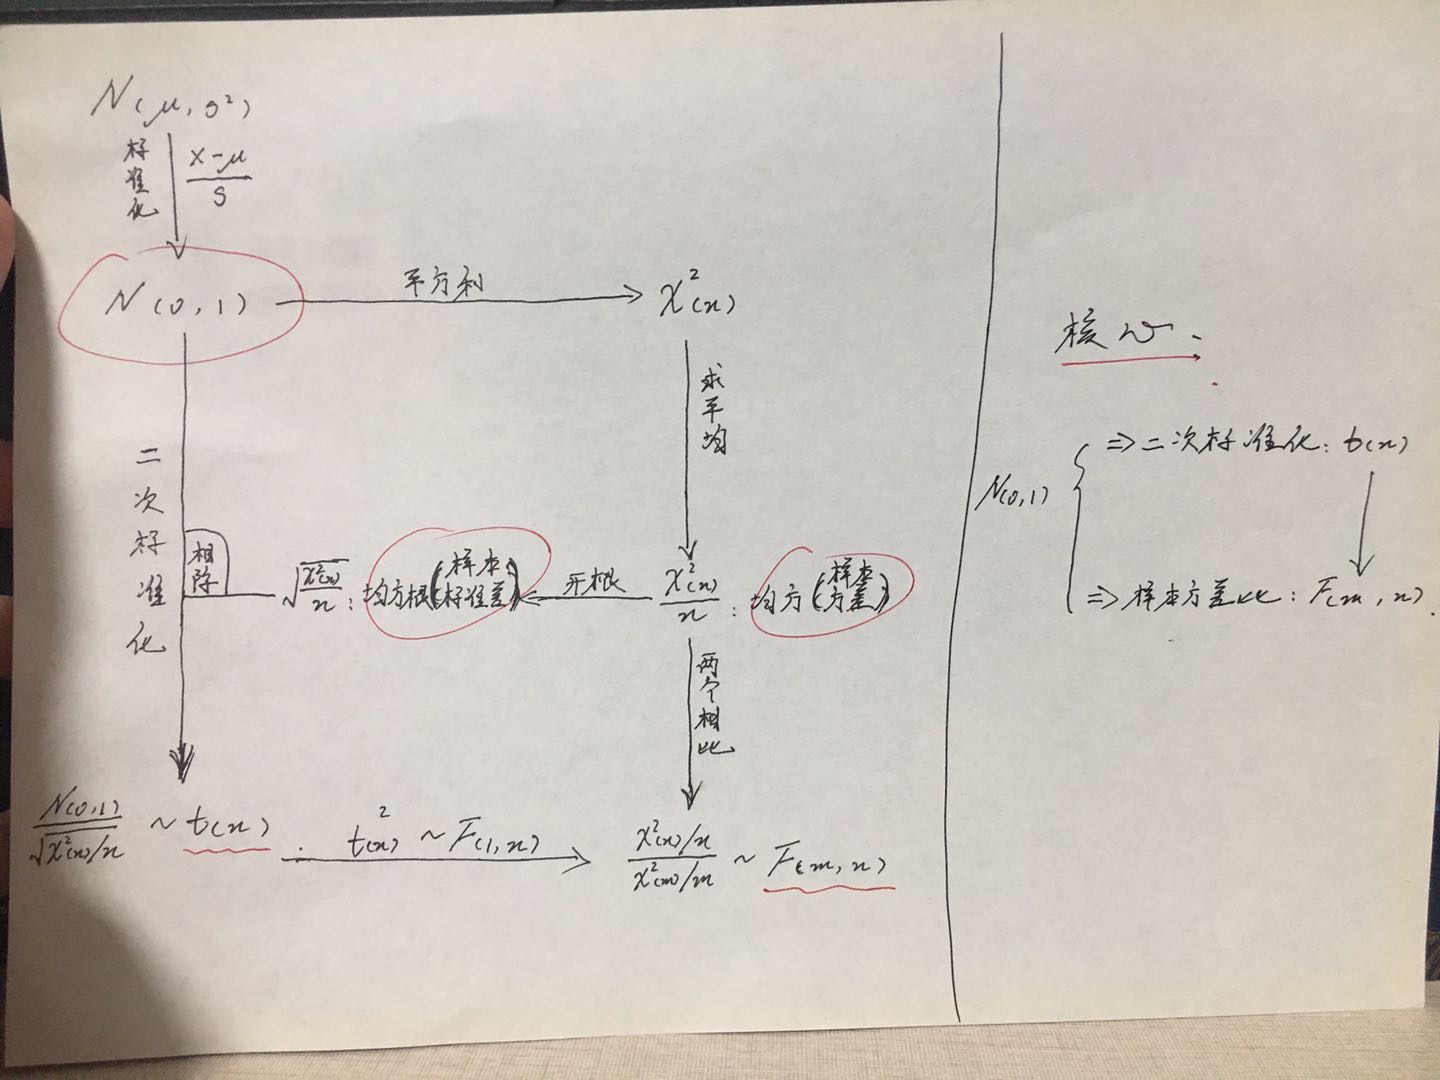 N(μ, s²)
标准化
X-μ/s
N(0,1)
平方和
χ²(n)
求平均
二次标准化
相除
√χ²(n)/n : 均方根(样本标准差)
开根
χ²(n)/n : 均方(样本方差)
两个相比
N(0,1)/√χ²(n)/n ~ t(n)
t²(n) ~ F(1,n)
χ²(n)/n / χ²(m)/m ~ F(m,n)
核心、
N(0,1)
⇒二次标准化: t(n)
⇒样本方差比: F(m,n).